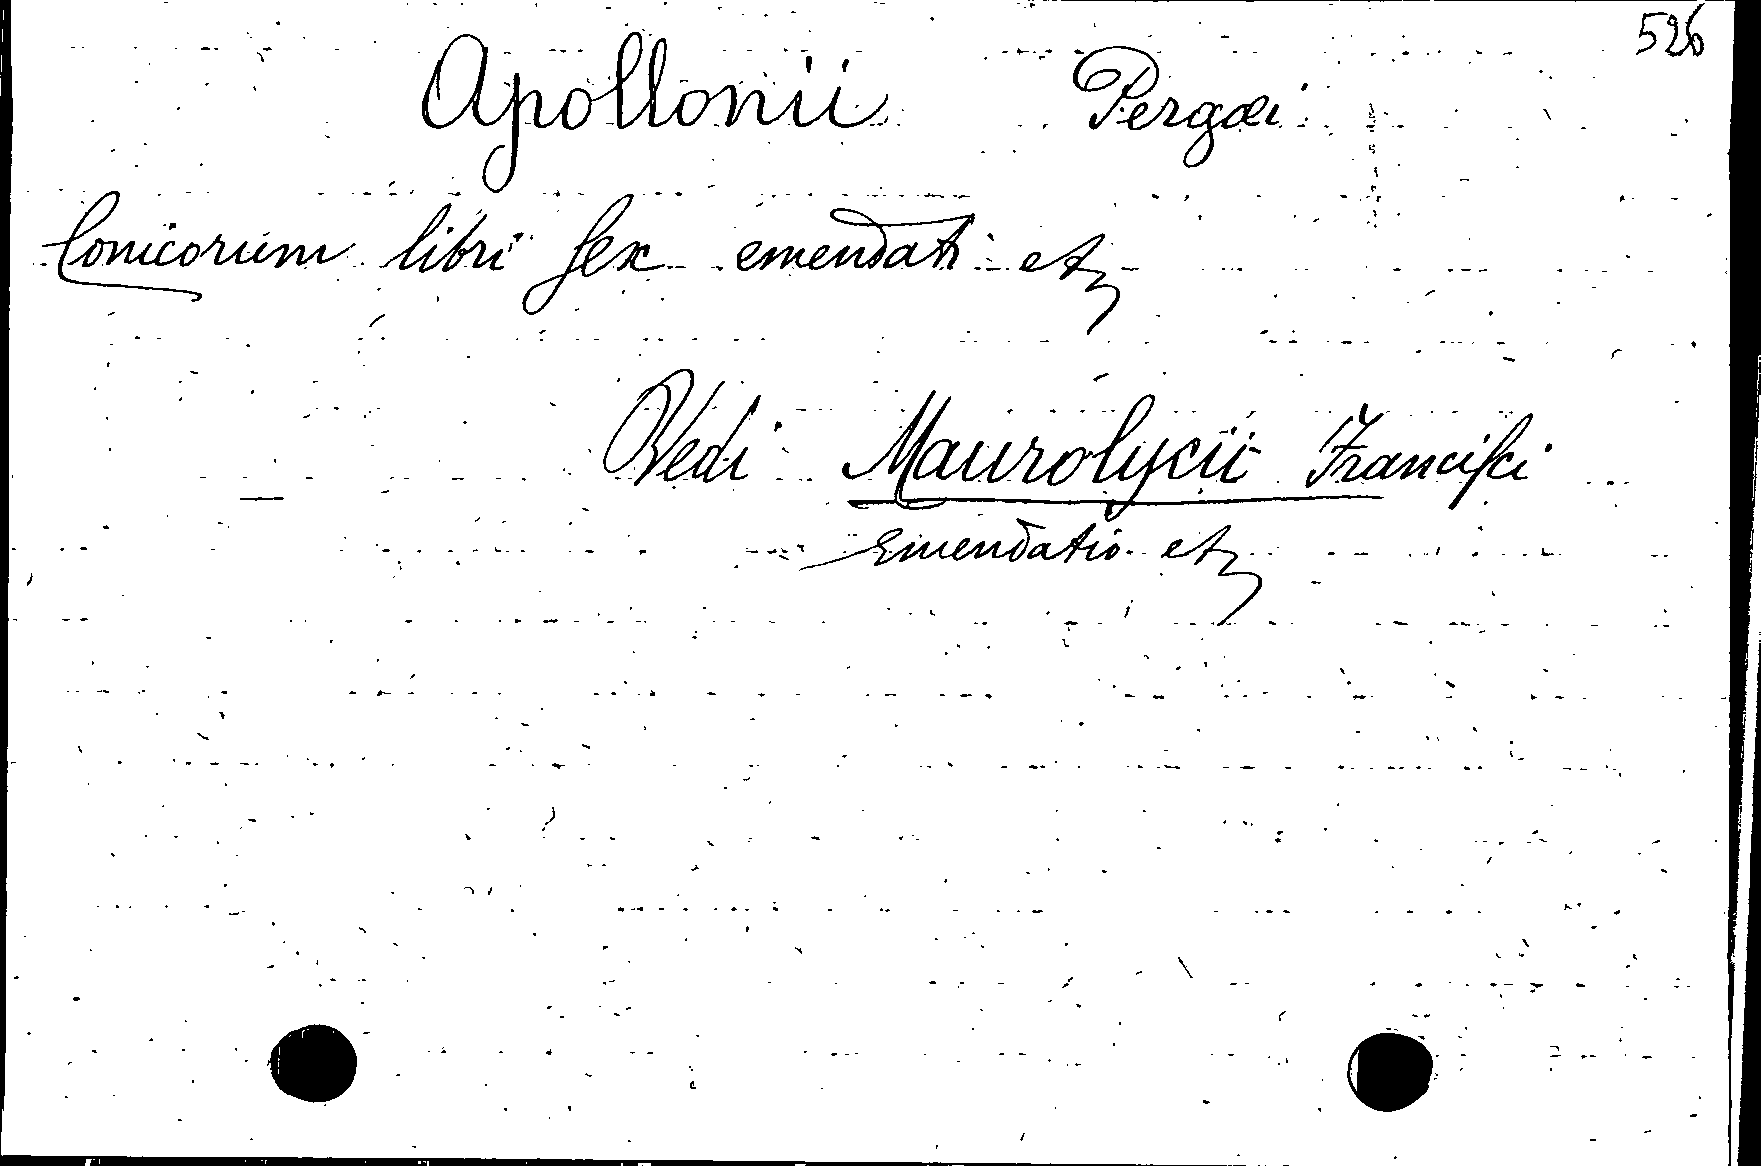 526
Apollonii Pergæi
Conicorum libri sex emendati etc
Vedi Maurolycii Francisci
Emendatio etc